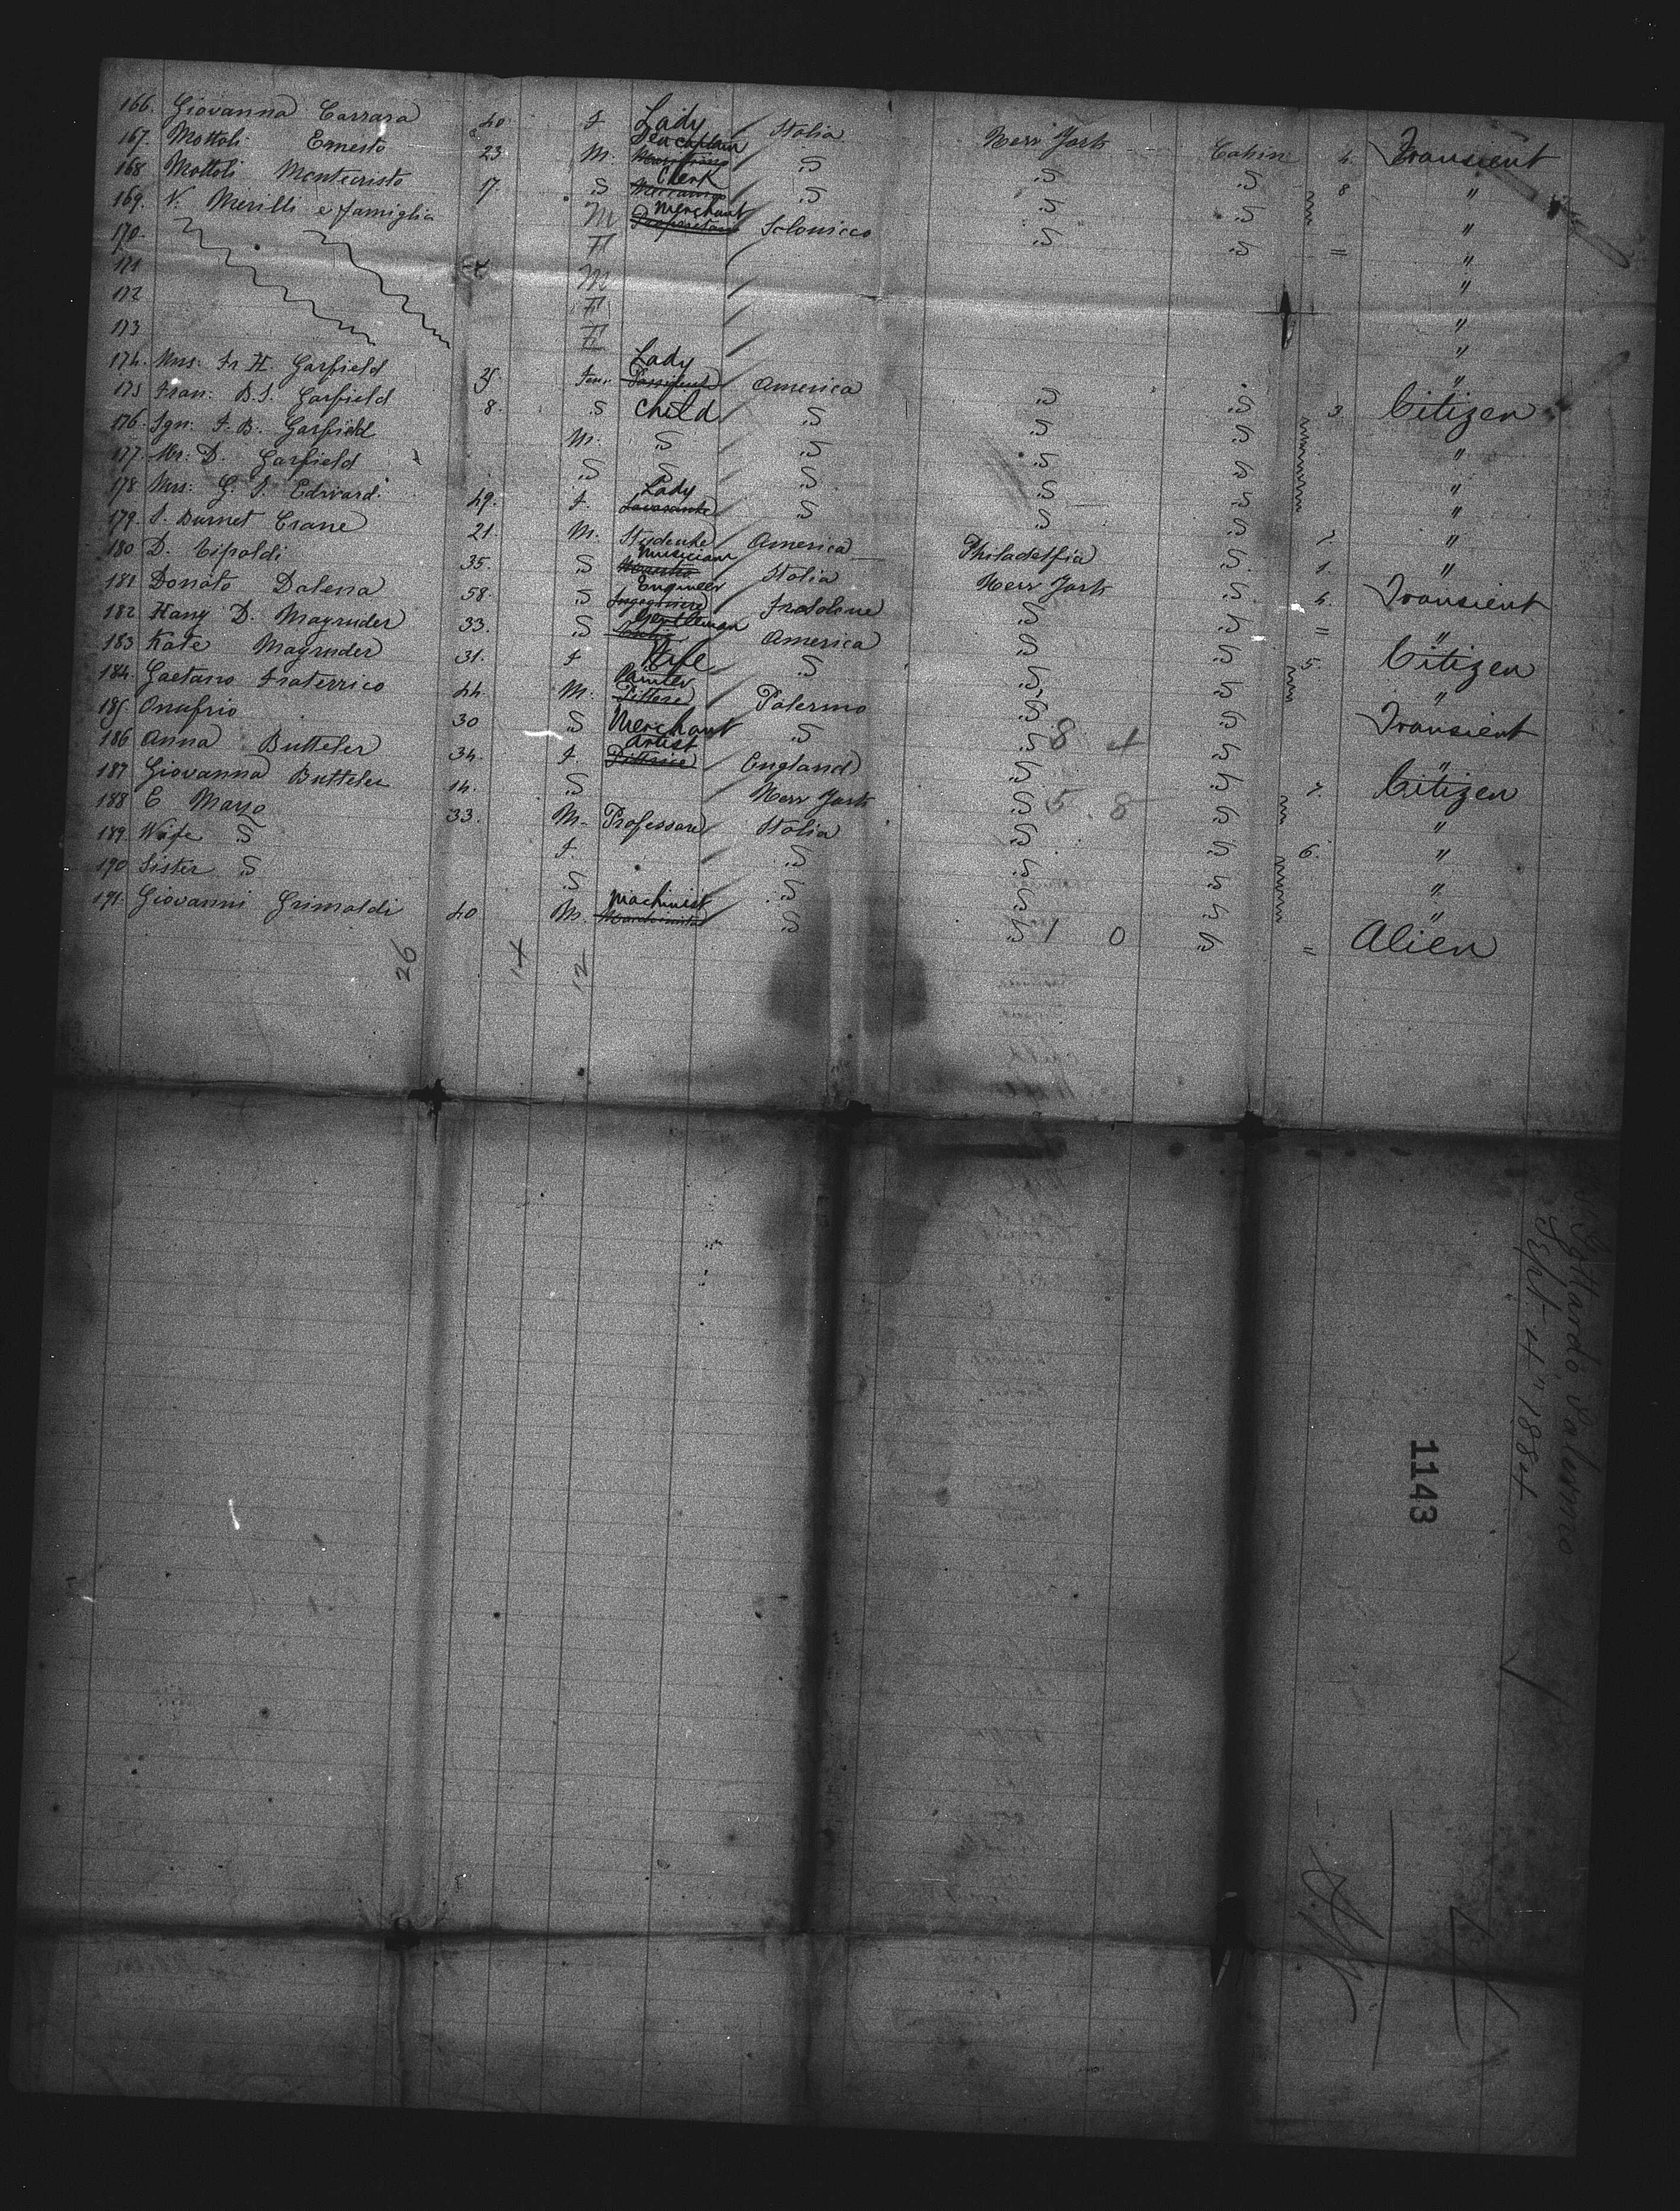 166. Giovanna Carrara 40. F Lady Italia New York Cabin 4. Transient
167. Mottoli Ernesto 23. M. Sea captain S S S 8 "
168 Mottoli Montecristo 17. S Clerk S S S "
169. N. Merilli e famiglia M Merchant Salonicco S S = "
170. F "
171 M "
172 F "
173 F "
174. Mrs: Fr H. Garfield 25. Fem. Lady America S S 3. Citizen
175 Fran: B. S. Garfield 8. S child S S S "
176. Sgn: F. B. Garfield M. S S S S "
177. Mr: D. Garfield S S S S S "
178 Mrs: G. S. Edward. 49. F. Lady S S S "
179. S. Burnet Crane 21. M. Studente America Philadelfia S. 1. "
180 D. Cipoldi 35. S Musician Italia New York S 4. Transient
181 Donato Dalena 58. S Engineer S S = "
182 Hany D. Magruder 33. S Gentleman America S S 5. Citizen
183 Kate Magruder 31. F Wife S S S "
184. Gaetano Fraterrico 44 M. Painter Palermo S S Transient
185 Onufrio 30 S Merchant S S S "
186 Anna Butteler 34. F. Artist England S S 7. Citizen
187 Giovanna Butteler 14. S New York S S "
188 E Marzo 33. M. Professore Italia S S 6. "
189. Wife S F. S S S "
190 Sister S S S S S "
191. Giovanni Grimaldi 40 M. Machinist S S S = Alien
8 4
5 8
1 0
26 14 12
Gottardo, Palermo
Sept. 4" 1884
1143